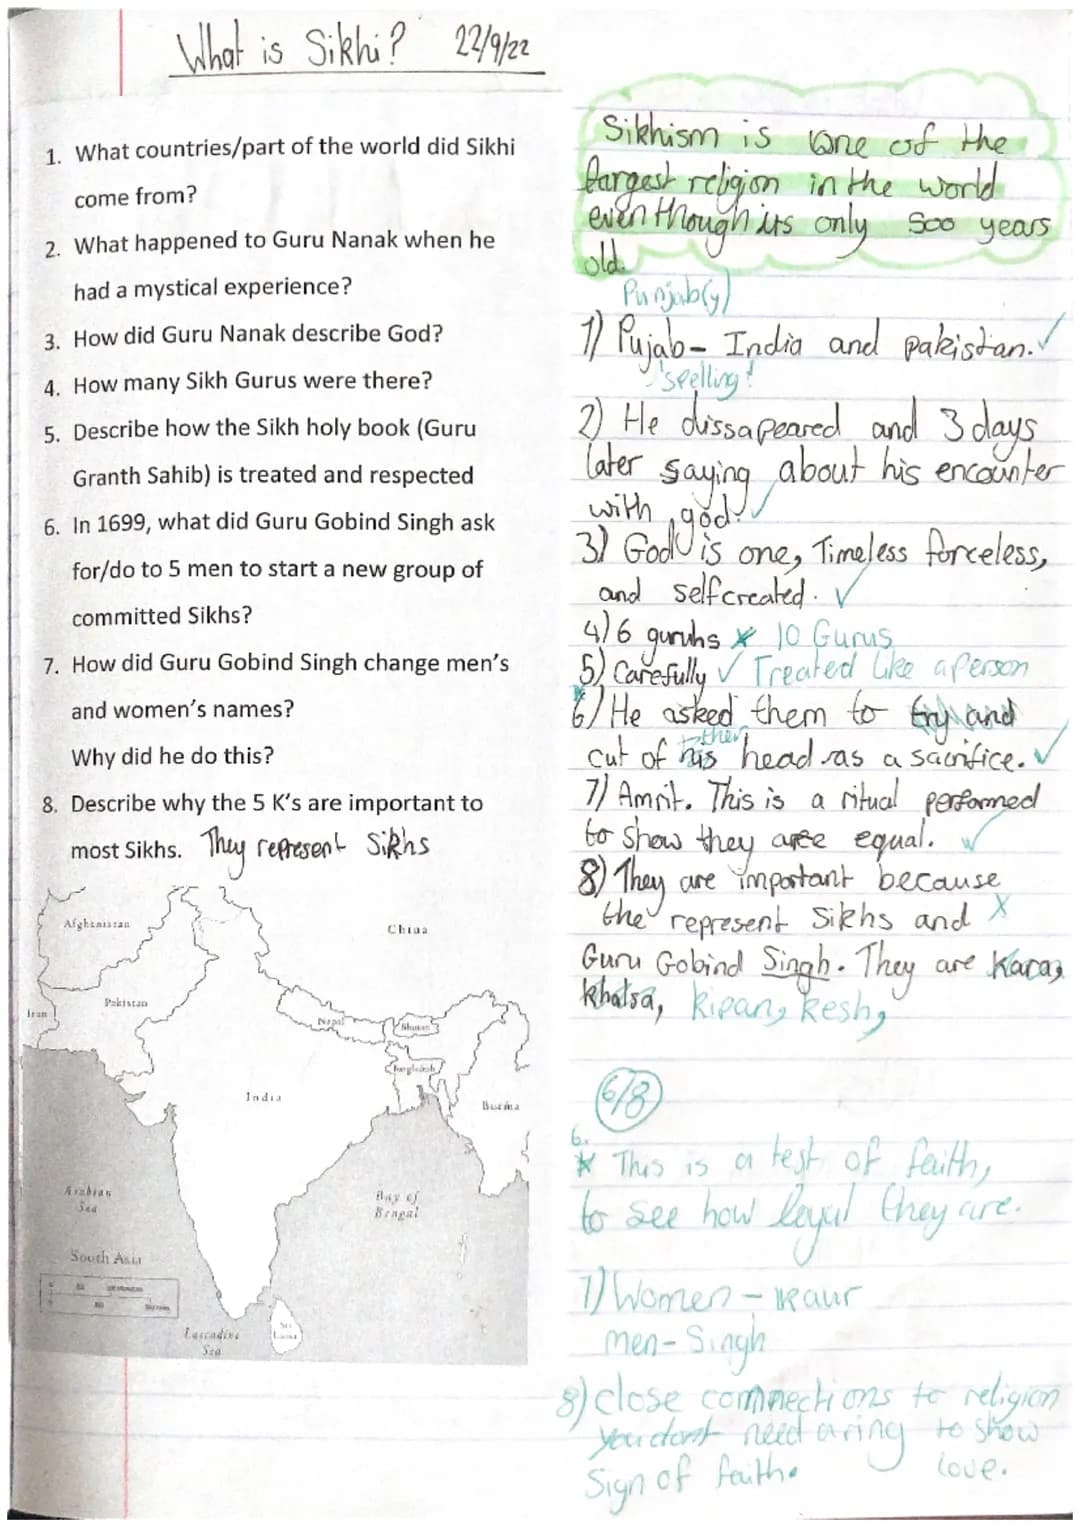 What is Sikhi? 22/9/22
1. What countries/part of the world did Sikhi
come from?
2. What happened to Guru Nanak when he
had a mystical experience?
3. How did Guru Nanak describe God?
4. How many Sikh Gurus were there?
5. Describe how the Sikh holy book (Guru
Granth Sahib) is treated and respected
6. In 1699, what did Guru Gobind Singh ask
for/do to 5 men to start a new group of
committed Sikhs?
7. How did Guru Gobind Singh change men's
and women's names?
Why did he do this?
8. Describe why the 5 K's are important to
most Sikhs. They represent Sikhs
Afghanistan
China
Pakistan
Iran
Nepal
Bhutan
Bangladesh
India
Burma
Arabian
Sea
Bay of
Bengal
South Asia
Laccadive
Sea
Sri
Lanka
Sikhism is one of the
largest religion in the world
even though its only 500 years
old.
Punjab(y)
1) Pujab- India and pakistan. ✓
spelling!
2) He dissapeared and 3 days
later saying about his encounter
with god. ✓
3) God is one, Timeless forceless,
and selfcreated. ✓
4) 6 guruhs 10 Gurus
5) Carefully ✓ Treated like a person
6) He asked them to try and
cut of his head as a sacrifice. ✓
7) Amrit. This is a ritual performed
to show they are equal. ✓
8) They are important because
the represent Sikhs and X
Guru Gobind Singh. They are Kara,
Khalsa, kipan, kesh,
6/8
6.
* This is a test of faith,
to see how loyal they are.
7) Women - Kaur
men- Singh
8) close connections to religion
you dont need a ring to show
Sign of faith. love.